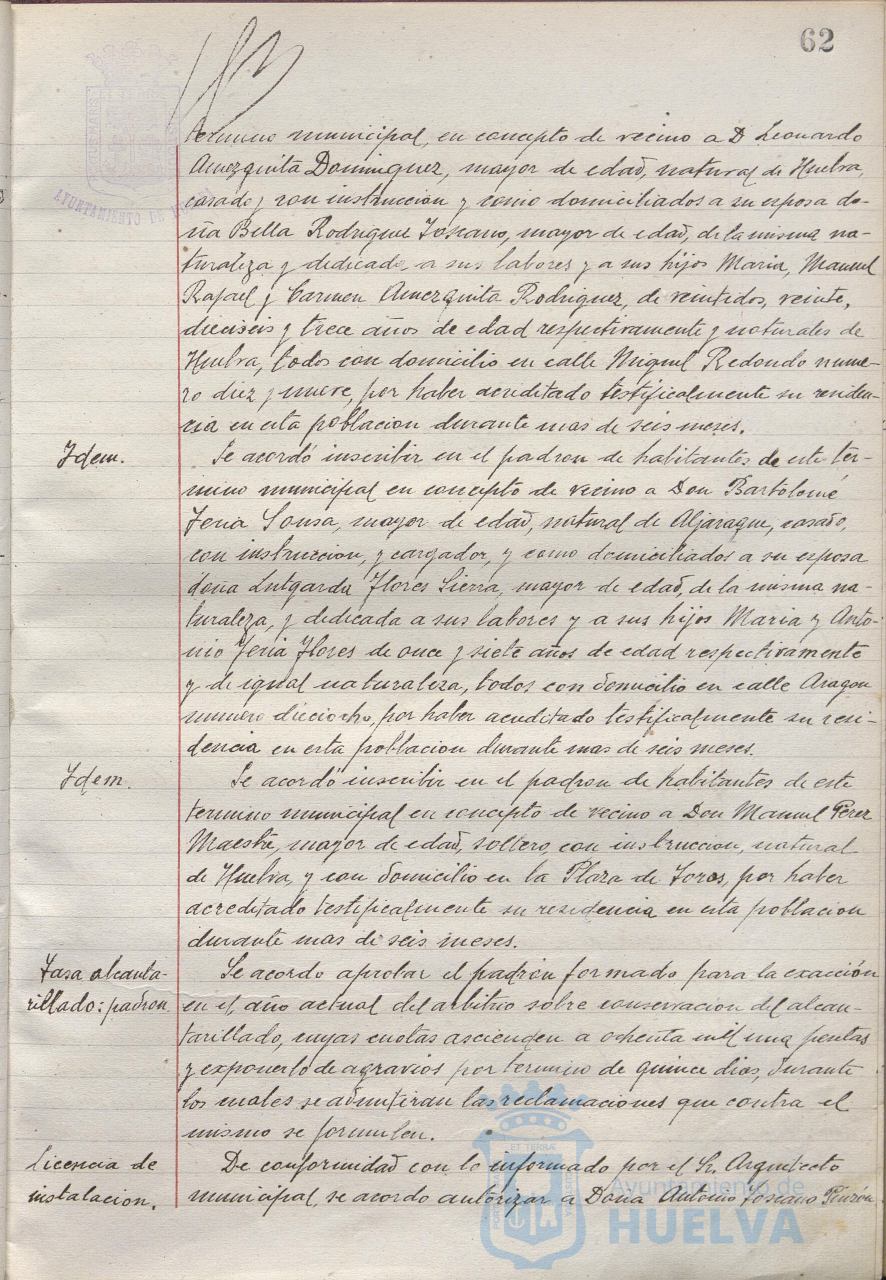 62
termino municipal, en concepto de vecino a D Leonardo
Amezquita Dominguez, mayor de edad, natural de Huelva,
casado, con instruccion y como domiciliados a su esposa do-
ña Bella Rodrigue Toscano, mayor de edad, de la misma na-
turaleza y dedicada a sus labores y a sus hijos Maria, Manuel
Rafael y Carmen Amezquita Rodriguez, de veintidos, veinte,
dieciseis y trece años de edad respectivamente y naturales de
Huelva, todos con domicilio en calle Miguel Redondo nume-
ro diez y nueve, por haber acreditado testificalmente su residen-
cia en esta poblacion durante mas de seis meses.
Idem. Se acordó inscribir en el padron de habitantes de este ter-
mino municipal en concepto de vecino a Don Bartolomé
Feria Sousa, mayor de edad, natural de Aljaraque, casado,
con instruccion, y cargador, y como domiciliados a su esposa
doña Lutgarda Flores Sierra, mayor de edad, de la misma na-
turaleza, y dedicada a sus labores y a sus hijos Maria y Anto-
nio Feria Flores de once y siete años de edad respectivamente
y de igual naturaleza, todos con domicilio en calle Aragon
numero dieciocho, por haber acreditado testificalmente su resi-
dencia en esta poblacion durante mas de seis meses.
Idem. Se acordó inscribir en el padron de habitantes de este
termino municipal en concepto de vecino a Don Manuel Perez
Maestre, mayor de edad, soltero, con instruccion, natural
de Huelva, y con domicilio en la Plaza de Toros, por haber
acreditado testificalmente su residencia en esta poblacion
durante mas de seis meses.
Tasa alcanta- Se acordo aprobar el padrón formado para la exacción
rillado: padron en el año actual del arbitrio sobre conservacion del alcan-
tarillado, cuyas cuotas ascienden a ochenta mil una pesetas
y exponerlo de agravios por termino de quince dias, durante
los cuales se admitiran las reclamaciones que contra el
mismo se formulen.
Licencia de De conformidad con lo informado por el Sr. Arquitecto
instalacion. municipal, se acordo autorizar a Doña Antonio Toscano Pinzón
AYUNTAMIENTO DE HUELVA
Ayuntamiento de
HUELVA